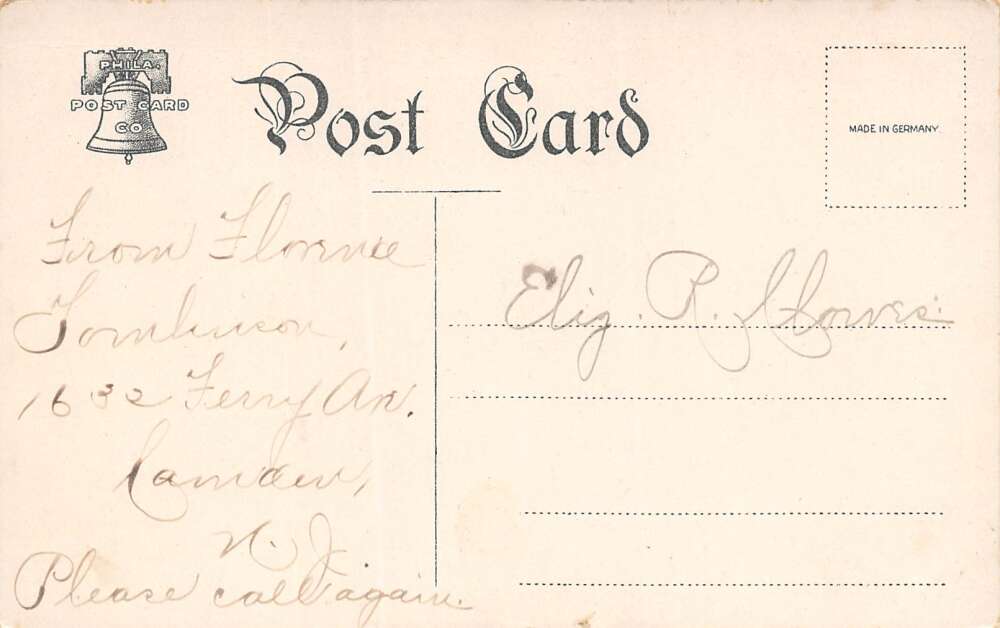 PHILA.
POST CARD
CO
Post Card
MADE IN GERMANY.
From Florence
Tomlinson,
1632 Ferry Av.
Camden,
N. J.
Please call again.
Eliz. R.